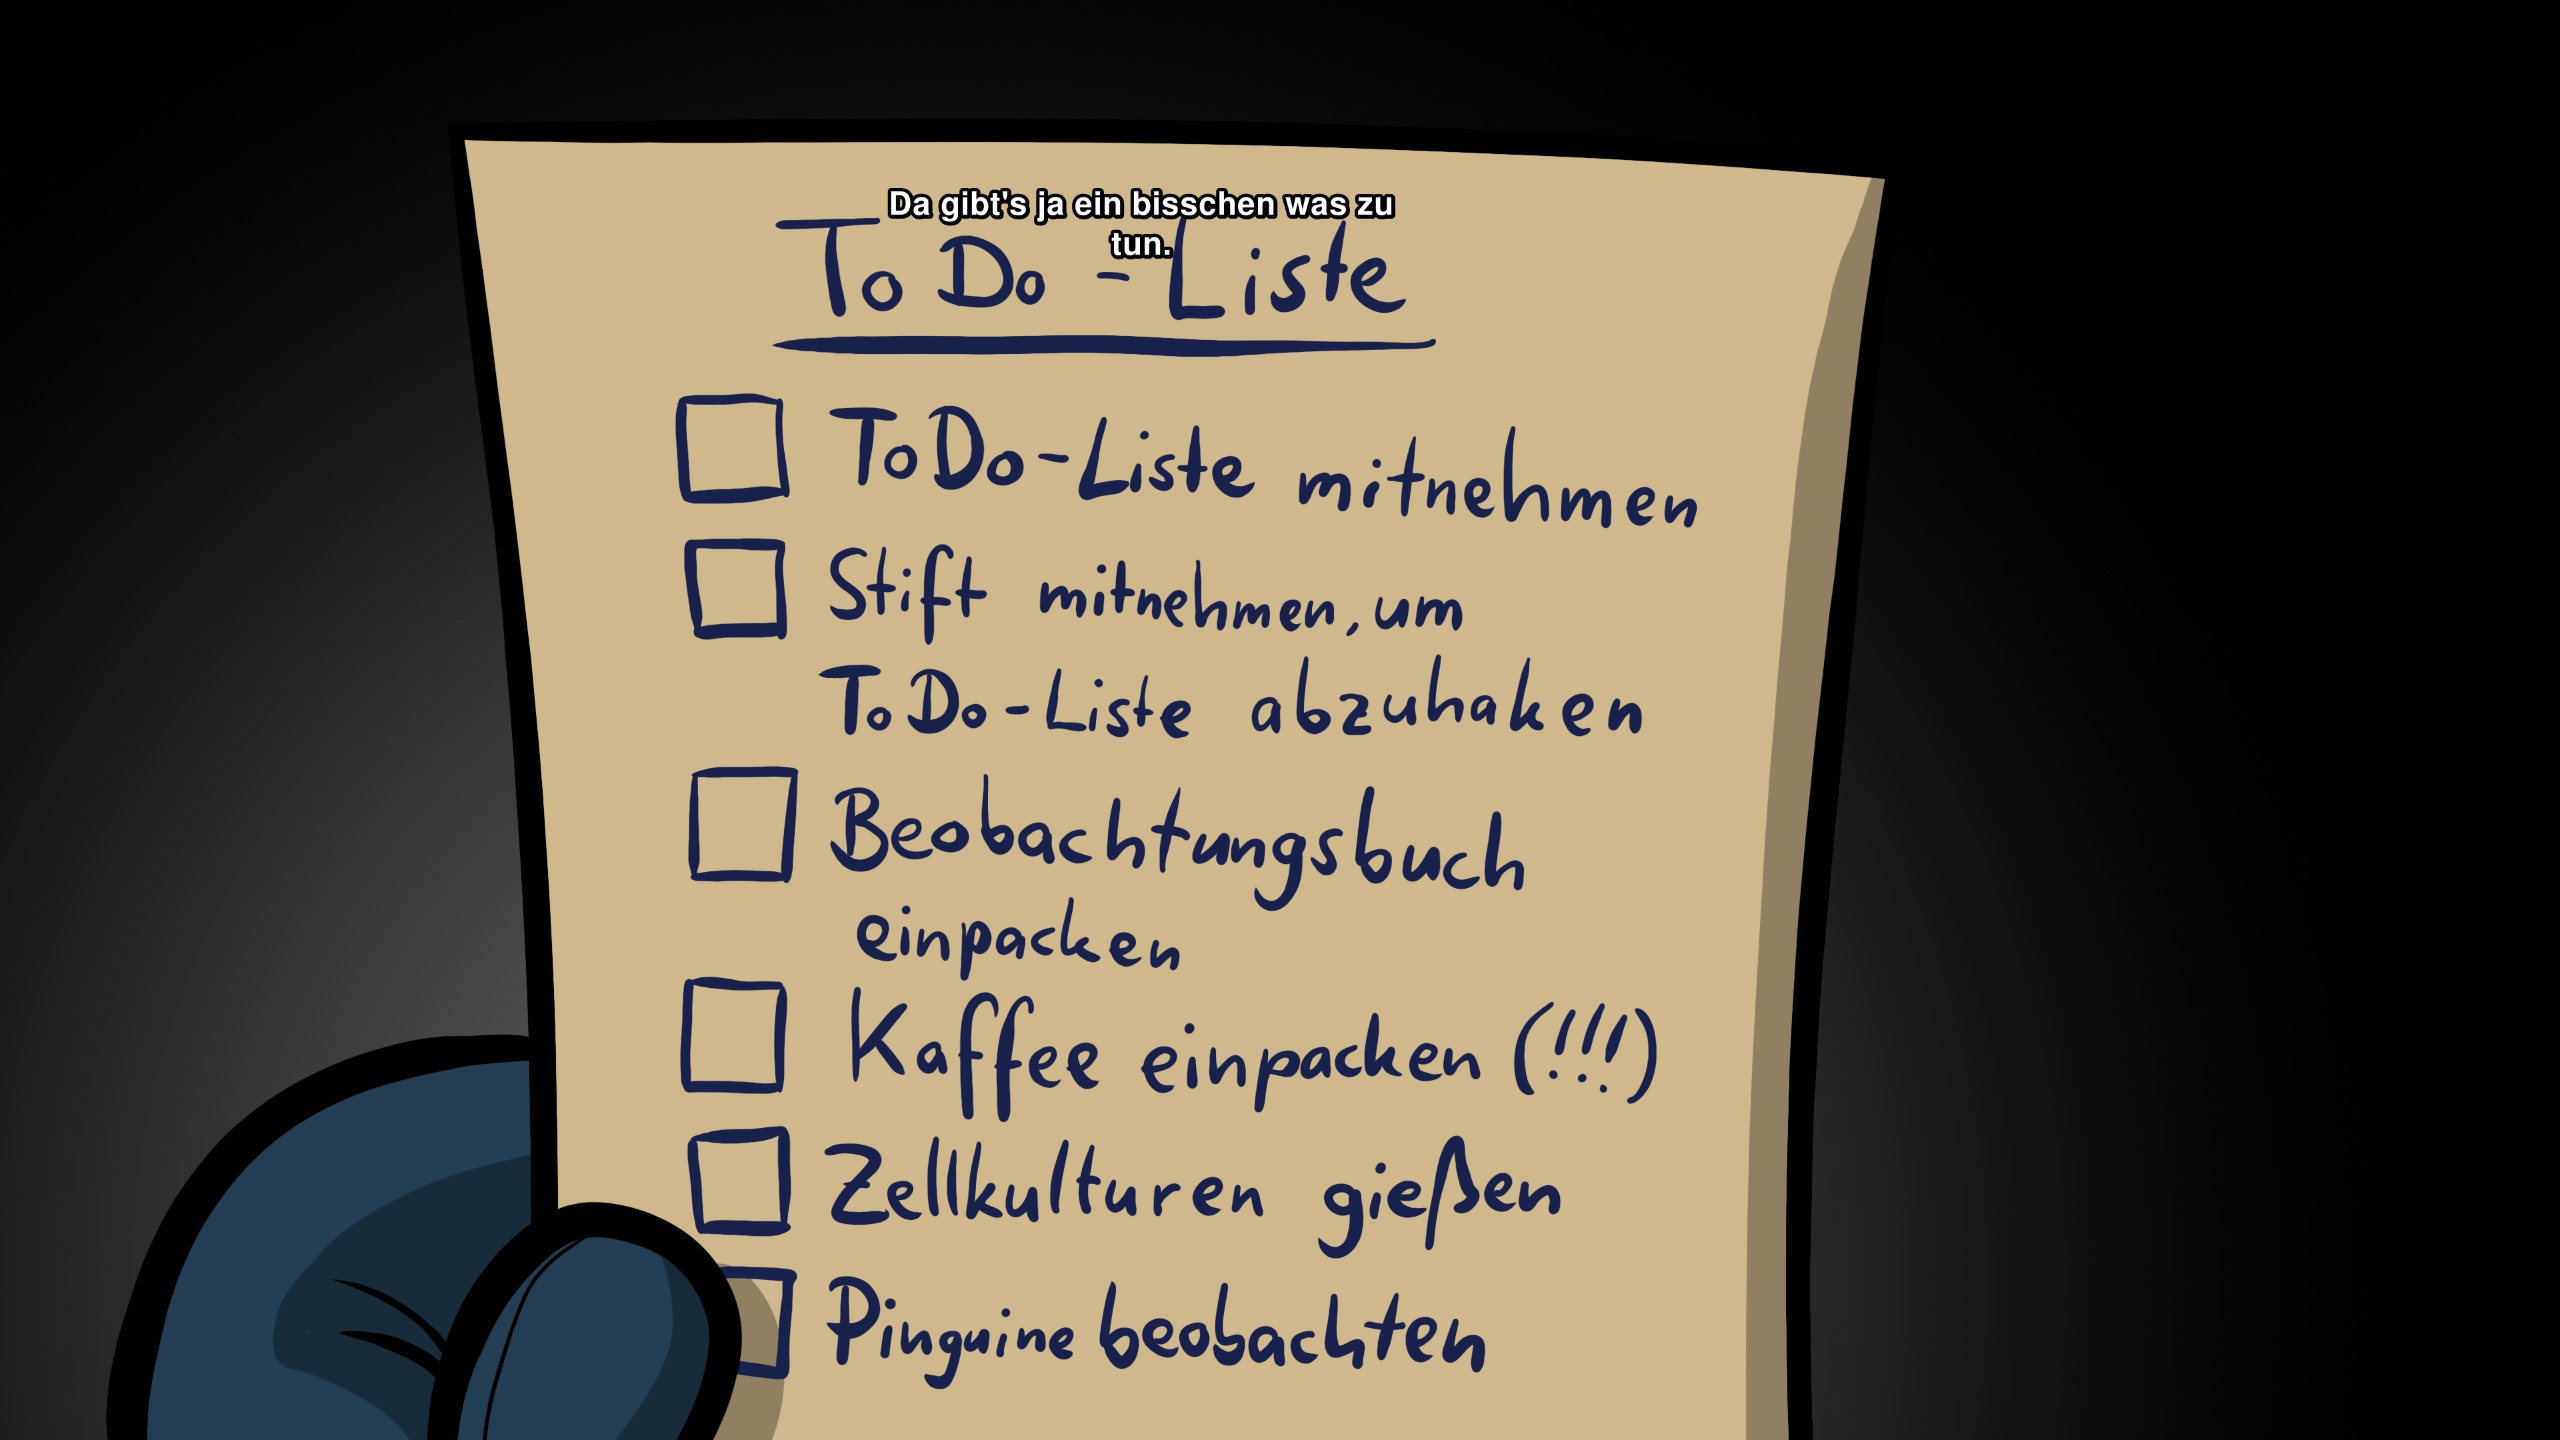 Da gibt's ja ein bisschen was zu
tun.
To Do - Liste
ToDo-Liste mitnehmen
Stift mitnehmen, um
ToDo-Liste abzuhaken
Beobachtungsbuch
einpacken
Kaffee einpacken (!!!)
Zellkulturen gießen
Pinguine beobachten